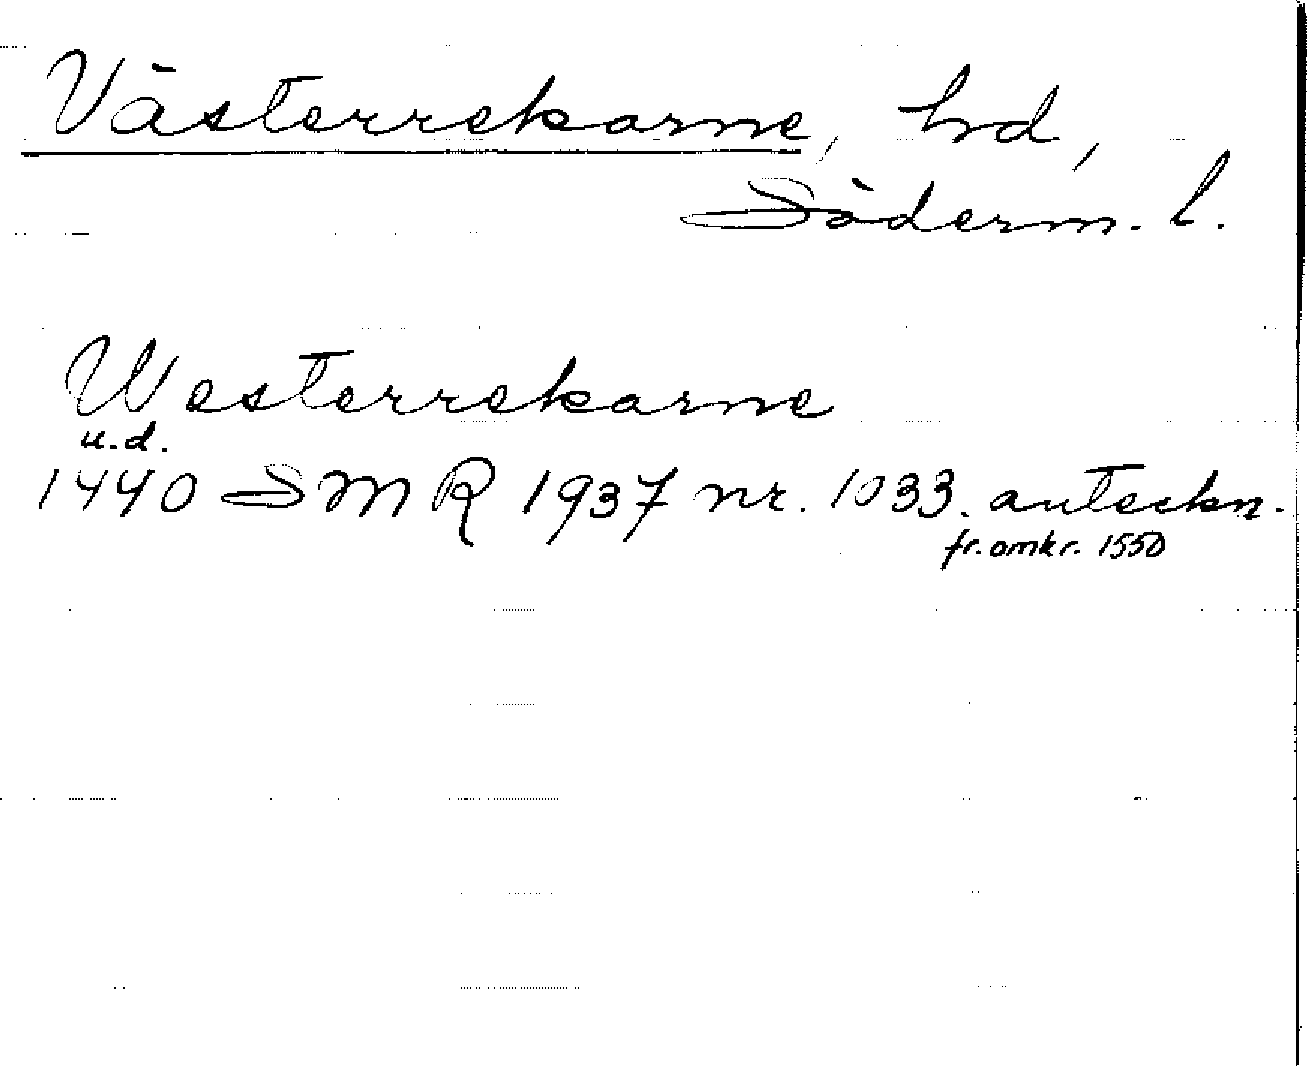 Västerrekarne, hd,
Söderm. l.
Westerrekarne
u.d.
1440 SMR 1937 nr. 1033. anteckn.
fr. omkr. 1550